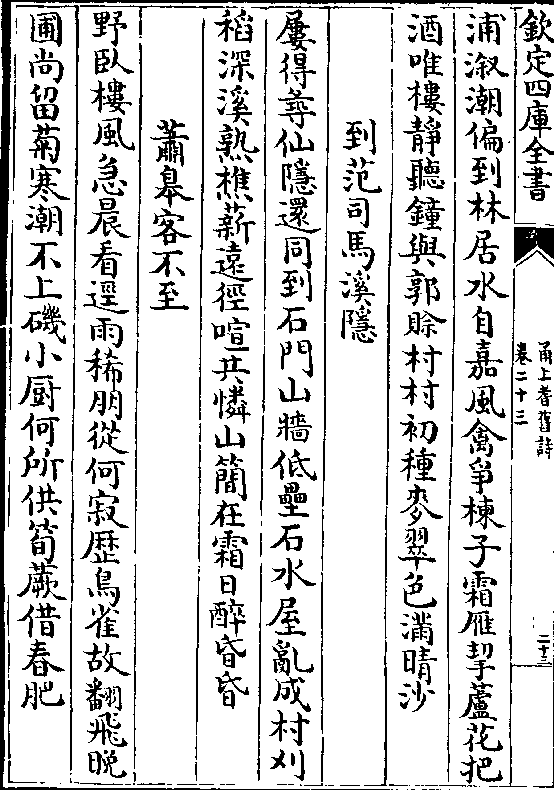 欽定四庫全書
甬上耆舊詩
卷二十三
二十三
浦溆潮偏到林居水自嘉風禽爭楝子霜雁挈蘆花把
酒唯樓靜聽鐘與郭賖村村初種麥翠色滿晴沙
到范司馬溪隱
屢得尋仙隱還同到石門山牆低壘石水屋亂成村刈
稻深溪熟樵薪遠徑喧共憐山簡在霜日醉昏昏
蕭皋客不至
野臥樓風急晨看逕雨稀朋從何寂歴鳥雀故翻飛晚
圃尚留菊寒潮不上磯小厨何所供筍蕨借春肥